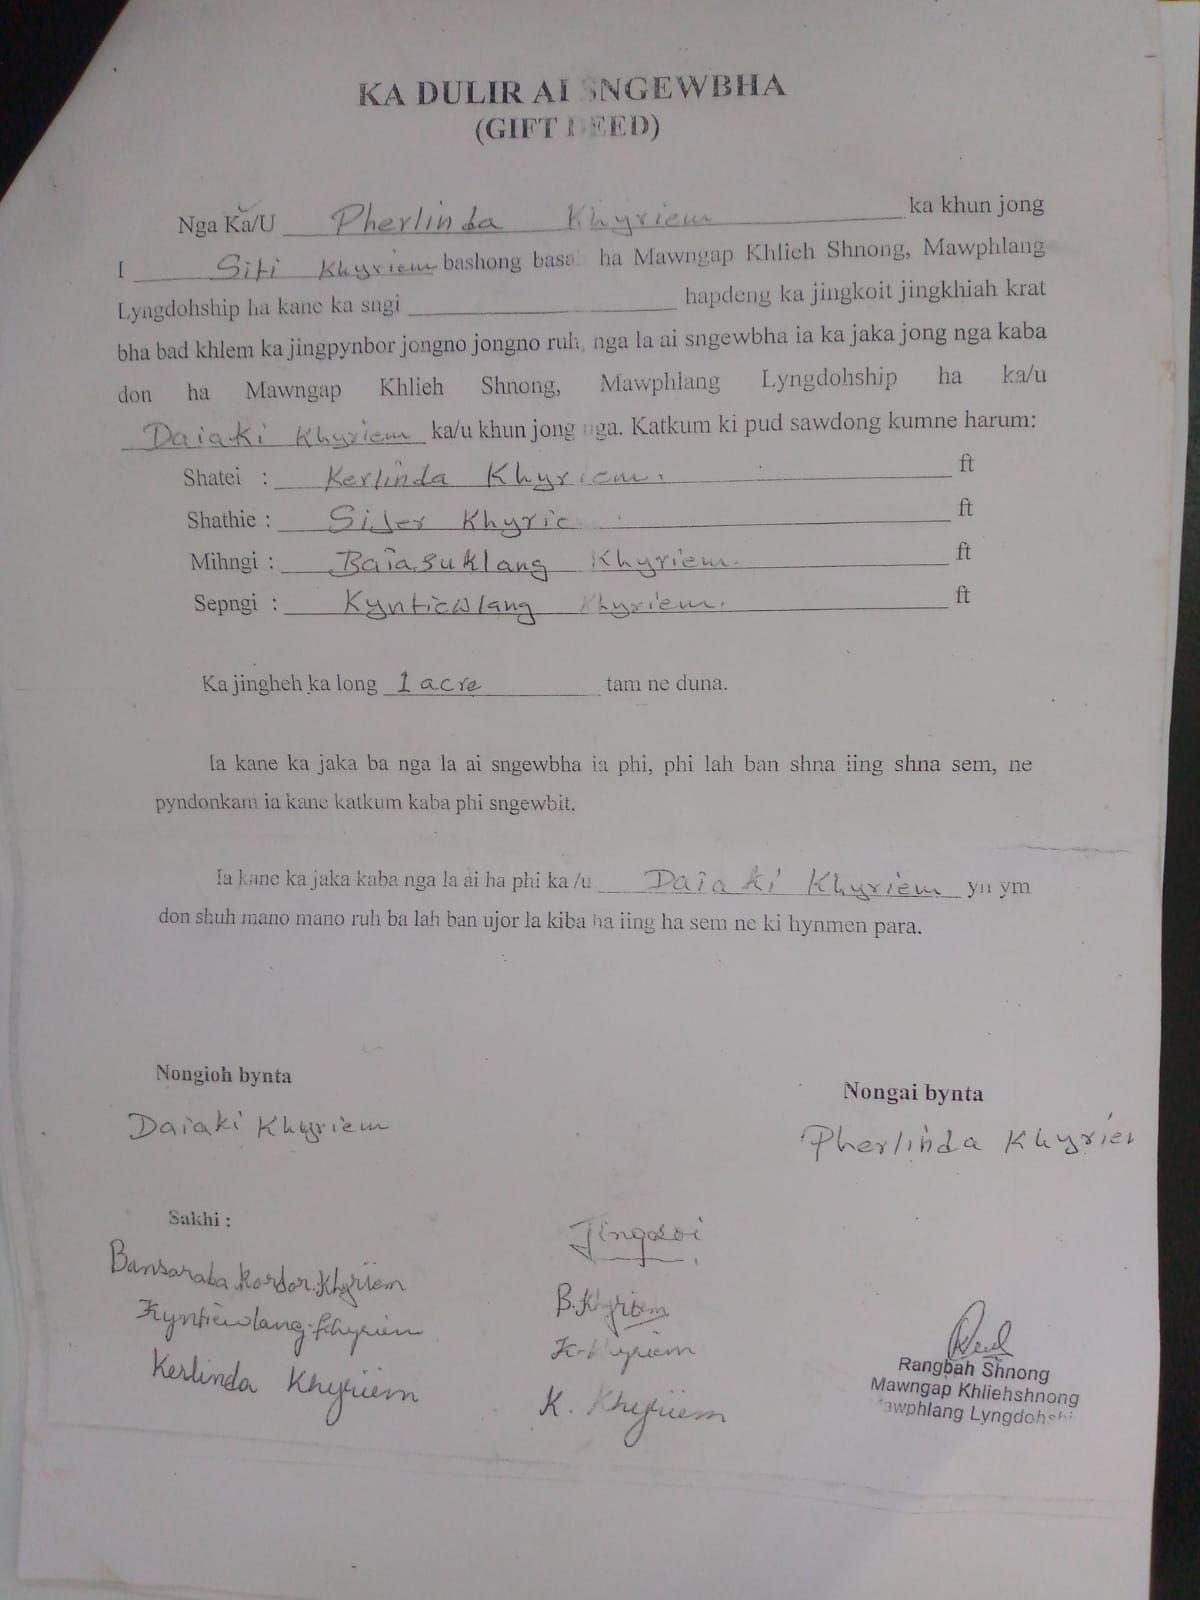 KA DULIR AI SNGEWBHA
(GIFT DEED)
Nga Ka/U Pherlinda Khyriem ka khun jong
I Siti Khyriem bashong basa ha Mawngap Khlieh Shnong, Mawphlang
Lyngdohship ha kane ka sngi hapdeng ka jingkoit jingkhiah krat
bha bad khlem ka jingpynbor jongno jongno ruh, nga la ai sngewbha ia ka jaka jong nga kaba
don ha Mawngap Khlieh Shnong, Mawphlang Lyngdohship ha ka/u
Daiaki Khyriem ka/u khun jong nga. Katkum ki pud sawdong kumne harum:
Shatei : Kerlinda Khyriem. ft
Shathie : Khyrie ft
Mihngi : Baiasuklang Khyriem. ft
Sepngi : Kyntiewlang Khyriem. ft
Ka jingheh ka long 1 acre tam ne duna.
Ia kane ka jaka ba nga la ai sngewbha ia phi, phi lah ban shna iing shna sem, ne
pyndonkam ia kane katkum kaba phi sngewbit.
Ia kane ka jaka kaba nga la ai ha phi ka /u Daiaki Khyriem yn ym
don shuh mano mano ruh ba lah ban ujor la kiba ha iing ha sem ne ki hynmen para.
Nongioh bynta
Nongai bynta
Daiaki Khyriem
Pherlinda Khyrier
Sakhi :
Jingsoi
Bansarala Kordor Khyriem
B. Khyriem
Kyntiewlang Khyriem
K. Khyriem
Kerlinda Khyriem
K. Khyriem
Rangbah Shnong
Mawngap Khliehshnong
Mawphlang Lyngdohshi